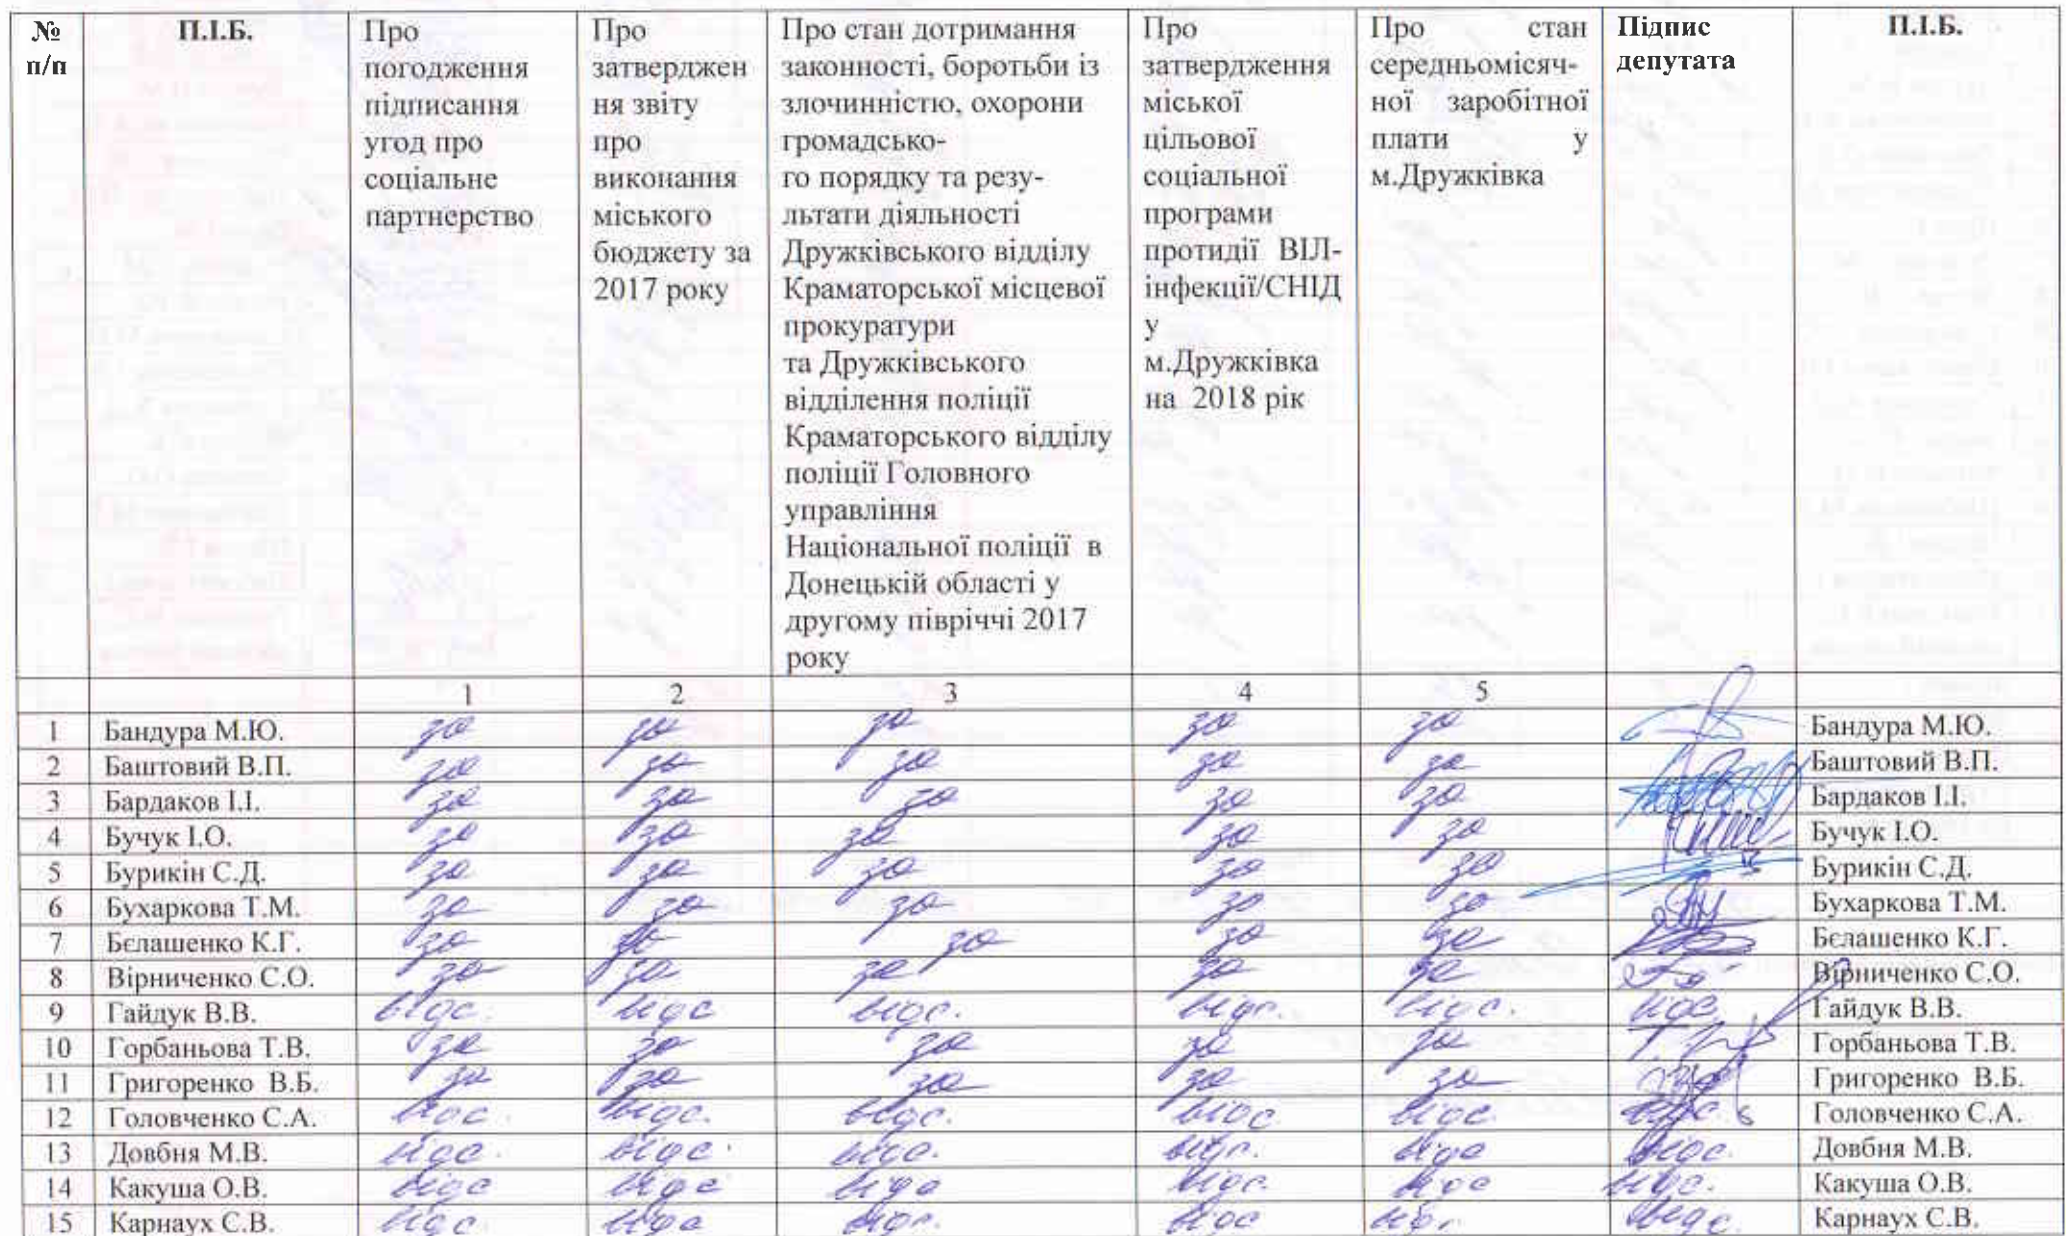 № п/п | П.І.Б. | Про погодження підписання угод про соціальне партнерство | Про затверджен ня звіту про виконання міського бюджету за 2017 року | Про стан дотримання законності, боротьби із злочинністю, охорони громадсько- го порядку та резу- льтати діяльності Дружківського відділу Краматорської місцевої прокуратури та Дружківського відділення поліції Краматорського відділу поліції Головного управління Національної поліції в Донецькій області у другому півріччі 2017 року | Про затвердження міської цільової соціальної програми протидії ВІЛ- інфекції/СНІД у м.Дружківка на 2018 рік | Про стан середньомісяч- ної заробітної плати у м.Дружківка | Підпис депутата | П.І.Б.
1 | 2 | 3 | 4 | 5
1 | Бандура М.Ю. | за | за | за | за | за | Бандура М.Ю.
2 | Баштовий В.П. | за | за | за | за | за | Баштовий В.П.
3 | Бардаков І.І. | за | за | за | за | за | Бардаков І.І.
4 | Бучук І.О. | за | за | за | за | за | Бучук І.О.
5 | Бурикін С.Д. | за | за | за | за | за | Бурикін С.Д.
6 | Бухаркова Т.М. | за | за | за | за | за | Бухаркова Т.М.
7 | Бєлашенко К.Г. | за | за | за | за | за | Бєлашенко К.Г.
8 | Вірниченко С.О. | за | за | за | за | за | Вірниченко С.О.
9 | Гайдук В.В. | відс. | відс | відс. | відс. | відс. | відс. | Гайдук В.В.
10 | Горбаньова Т.В. | за | за | за | за | за | Горбаньова Т.В.
11 | Григоренко В.Б. | за | за | за | за | за | Григоренко В.Б.
12 | Головченко С.А. | відс. | відс. | відс. | відс | відс. | відс. | Головченко С.А.
13 | Довбня М.В. | відс. | відс. | відс. | відс. | відс | відс. | Довбня М.В.
14 | Какуша О.В. | відс | відс | відс | відс. | відс | відс. | Какуша О.В.
15 | Карнаух С.В. | відс. | відс | відс. | відс | відс. | відс. | Карнаух С.В.